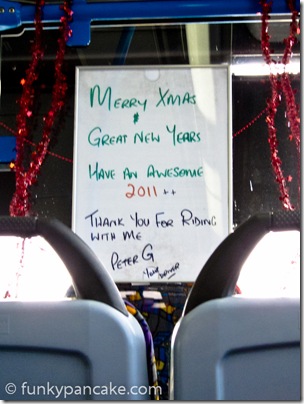 MERRY XMAS
&
GREAT NEW YEARS
HAVE AN AWESOME
2011 ++
THANK YOU FOR RIDING
WITH ME
PETER G
YOUR DRIVER
© funkypancake.com